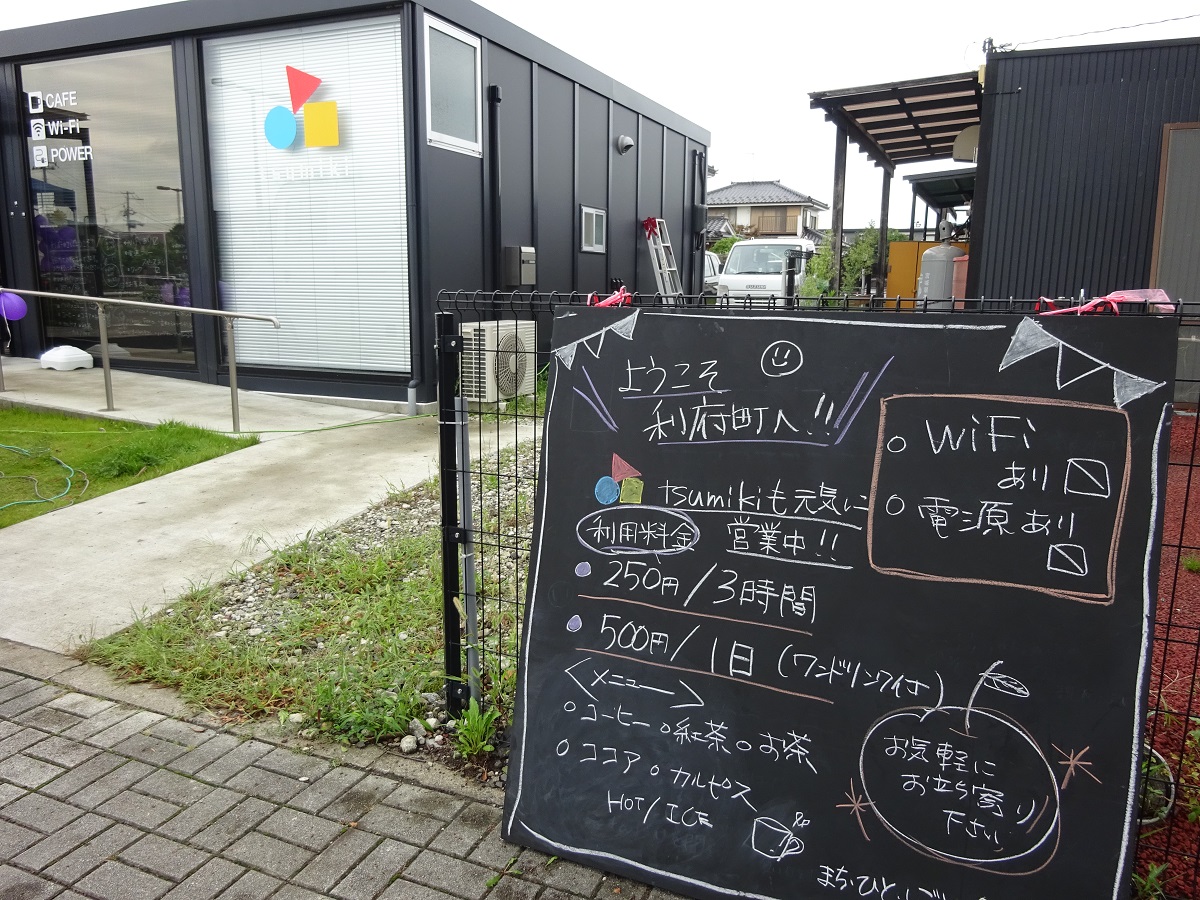 CAFE
Wi-Fi
POWER
tsumiki
ようこそ
利府町へ!!
tsumikiも元気に
営業中!!
利用料金
250円/3時間
500円/1日(ワンドリンク付)
<メニュー>
コーヒー 紅茶 お茶
ココア カルピス
HOT/ICE
WiFi
あり
電源あり
お気軽に
お立ち寄り
下さい
まち・ひと・しごと